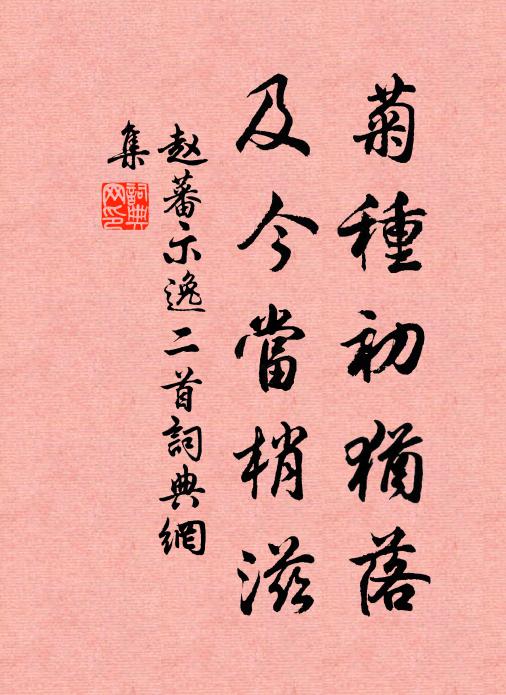 菊種初猶落
及今當梢滋
赵蕃示逸二首詞典網
集
詞典网印